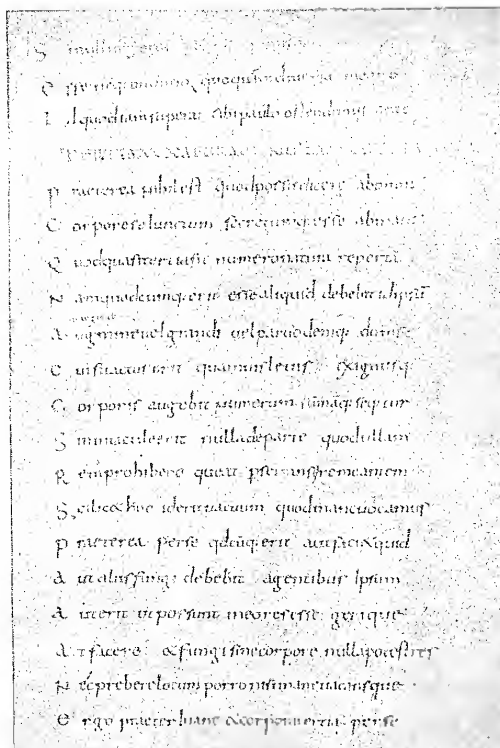 S i nullum foret
E sse neq; omnino quoquam diuersa meare
I d quod iam supera tibi paulo ostendimus ante
P raeterea nihil est quod possis dicere ab omni
C orpore seiunctum secretumq; esse ab inani
Q uod quasi tertia sit numero natura reperta
N am quodcumq; erit esse aliquid debebit id ipsū
A ugmine uel grandi uel paruo deniq; dum sit
C ui si tactus erit quamuis leuis exiguusq;
C orporis augebit numerum summāq; sequetur
S in intactile erit nulla de parte quod ullam
R em prohibere queat p se transire meantem
S cilicet hoc id erit uacuum quod inane uocamus
P raeterea per se qdcūq; erit aut faciet quid
A ut aliis fungi debebit agentibus ipsum
A ut erit ut possunt in eo res esse geriq;
A t facere & fungi sine corpore nulla potest res
N ec prebere locum porro nisi inane uacansque
E rgo praeter inane & corpora tertia per se